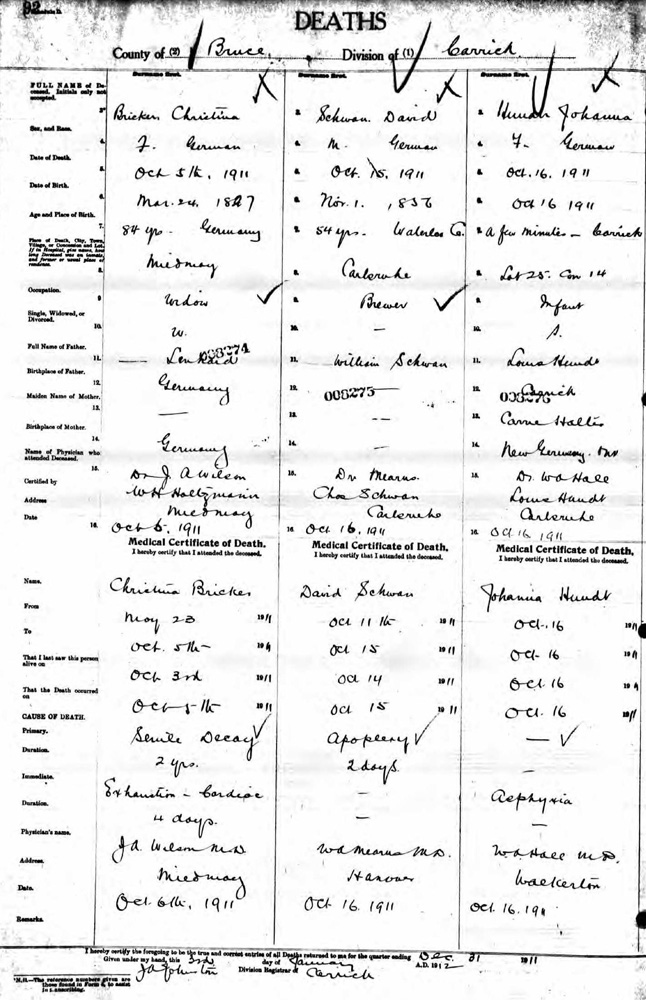 92
DEATHS
County of (2) Bruce, Division of (1) Carrick
Surname first. Surname first. Surname first.
FULL NAME of Deceased. Initials only not accepted. Bricker, Christina Schwan David Johanna
Sex, and Race. F. German M. German F. German
Date of Death. Oct 5th, 1911 Oct. 15, 1911 Oct. 16. 1911
Date of Birth. Mar. 24, 1827 Nov. 1. 1856 Oct 16 1911
Age and Place of Birth. 84 yrs - Germany 54 yrs. Waterloo Co. A few minutes - Carrick
Place of Death, City, Town, Village, or Concession and Lot. If in Hospital, give name, how long Deceased was an inmate, and former or usual place of residence. Mildmay Carlsruhe Lot 25. Con 14
Occupation. Widow Brewer Infant
Single, Widowed, or Divorced. W. — S.
Full Name of Father. 008274 William Schwan Louis Hundt
Birthplace of Father. Germany 008275 Carrick
008276
Maiden Name of Mother. — —
Birthplace of Mother. Germany — New Germany. Ont
Name of Physician who attended Deceased. Dr J. A Wilson Dr Mearns. Dr. W A Hall
Certified by W H Holtzmann Chas Schwan Louis Hundt
Address Mildmay Carlsruhe Carlsruhe
Date Oct 5, 1911 Oct 16, 1911 Oct 16 1911
Medical Certificate of Death. Medical Certificate of Death. Medical Certificate of Death.
I hereby certify that I attended the deceased. I hereby certify that I attended the deceased. I hereby certify that I attended the deceased.
Name. Christina Bricker David Schwan Johanna Hundt
From May 23 1911 Oct 11th 1911 Oct. 16 1911
To Oct. 5th 1911 Oct 15 1911 Oct 16 1911
That I last saw this person alive on Oct 3rd 1911 Oct 14 1911 Oct 16 1911
That the Death occurred on Oct 5th 1911 Oct 15 1911 Oct. 16 1911
CAUSE OF DEATH.
Primary. Senile Decay Apoplexy —
Duration. 2 yrs. 2 days —
Immediate. Exhaustion - Cardiac — Asphyxia
Duration. 4 days. — —
Physician's name. J A. Wilson M.D. W A Mearns M.D. W A Hall M.D.
Address. Mildmay Hanover Walkerton
Date. Oct. 6th, 1911 Oct 16. 1911 Oct. 16. 1911
Remarks.
I hereby certify the foregoing to be the true and correct entries of all Deaths returned to me for the quarter ending Dec. 31 1911
Given under my hand, this 3rd day of January A.D. 1912
J A Johnston Division Registrar of Carrick
N.B.—The reference numbers given are those found in Form 6, to assist in transcribing.